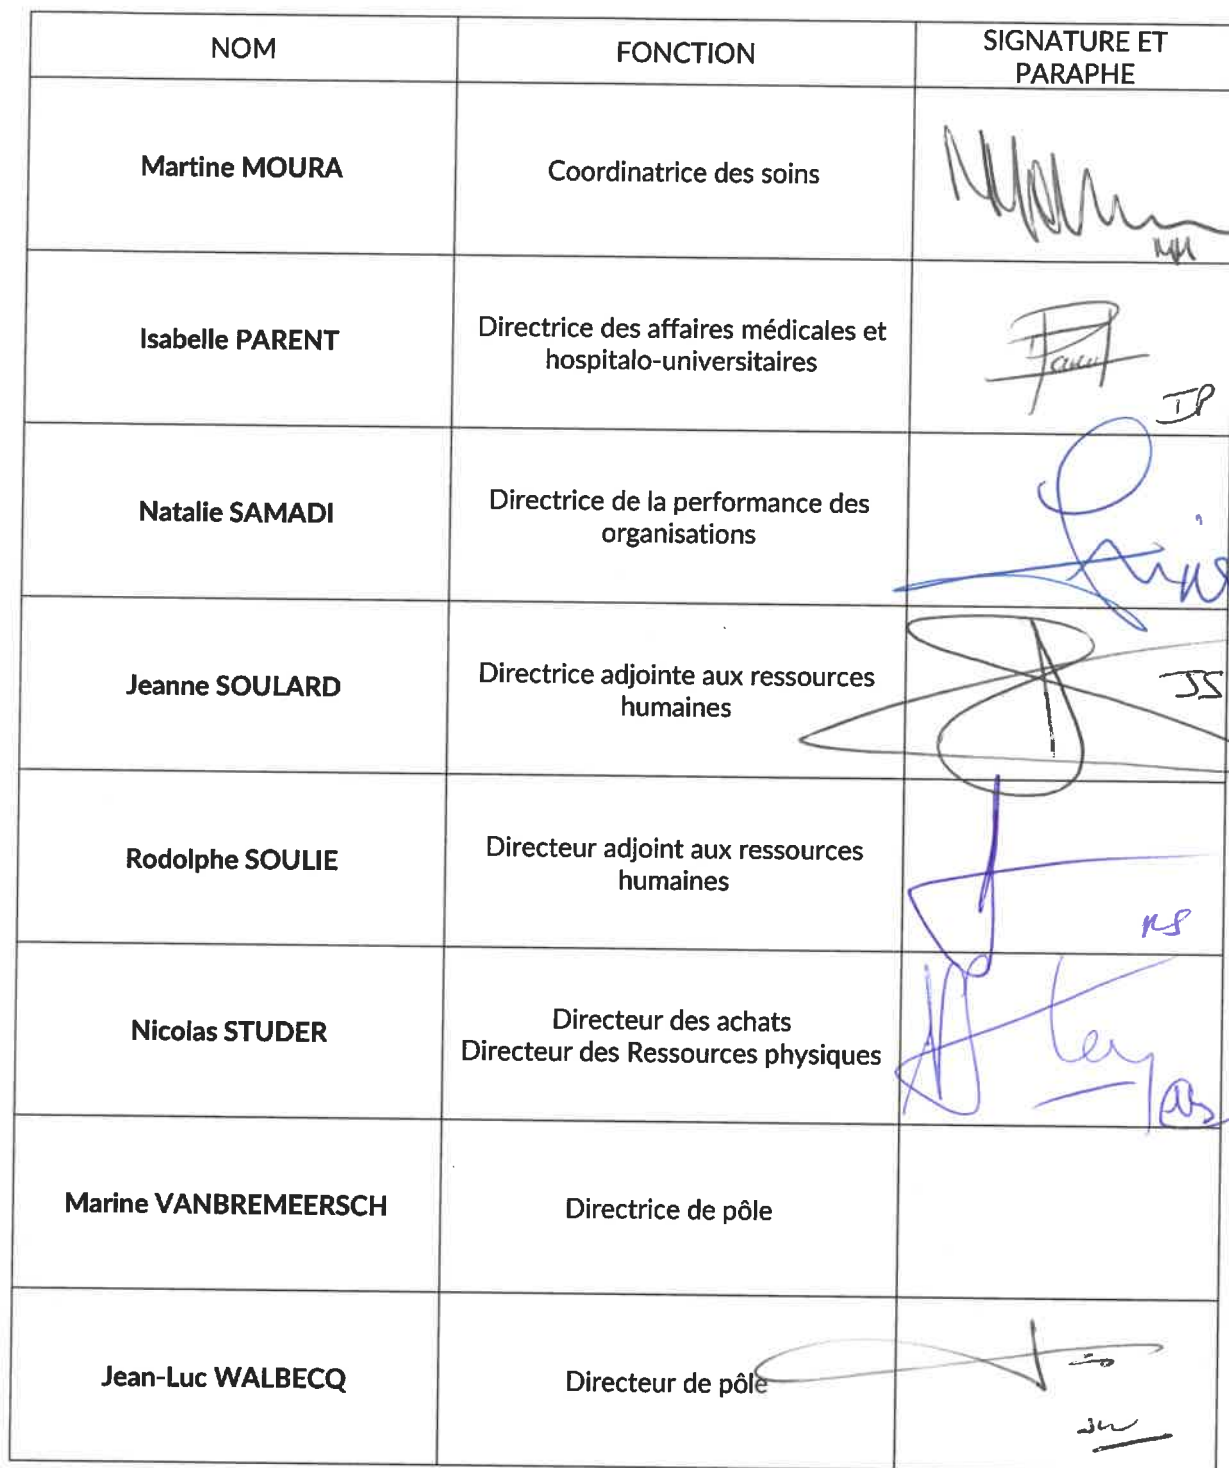 NOM
FONCTION
SIGNATURE ET
PARAPHE
Martine MOURA
Coordinatrice des soins
MM
Isabelle PARENT
Directrice des affaires médicales et
hospitalo-universitaires
IP
Natalie SAMADI
Directrice de la performance des
organisations
NS
Jeanne SOULARD
Directrice adjointe aux ressources
humaines
JS
Rodolphe SOULIE
Directeur adjoint aux ressources
humaines
RS
Nicolas STUDER
Directeur des achats
Directeur des Ressources physiques
Marine VANBREMEERSCH
Directrice de pôle
Jean-Luc WALBECQ
Directeur de pôle